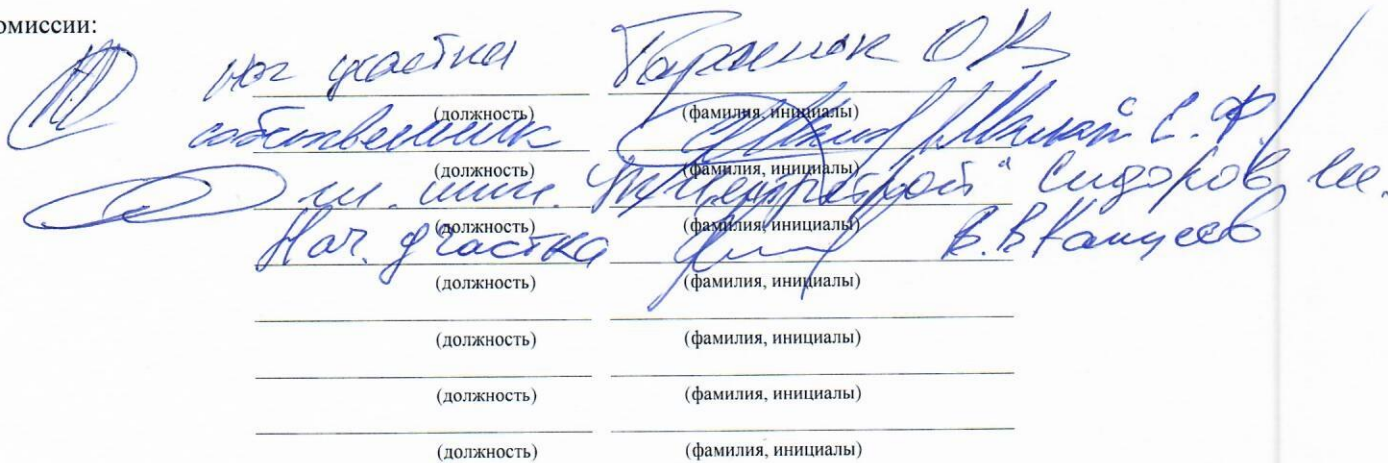 омиссии:
нач участка Таранюк О К
(должность) (фамилия, инициалы)
собственник С.Ф.
(должность) (фамилия, инициалы)
инж. Сидоров
(должность) (фамилия, инициалы)
Нач. участка В.В
(должность) (фамилия, инициалы)
(должность) (фамилия, инициалы)
(должность) (фамилия, инициалы)
(должность) (фамилия, инициалы)